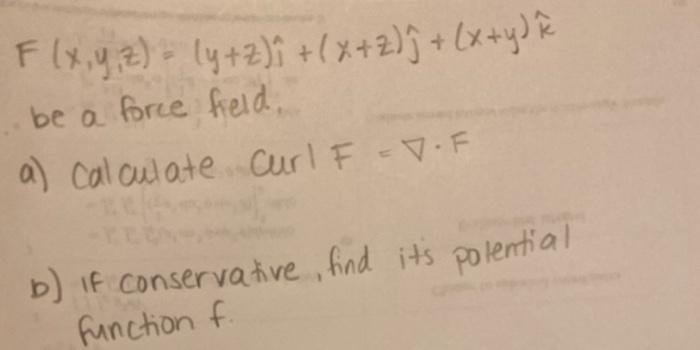 F(x,y,z) = (y+z)î + (x+z)ĵ + (x+y)k̂
be a force field.
a) Calculate Curl F = ∇·F
b) IF conservative, find it's potential
function f.